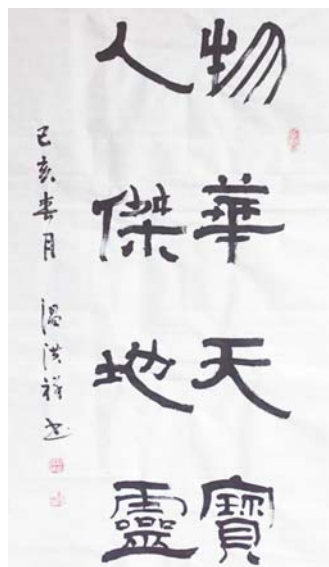 物華天寶
人傑地靈
己亥春月 温洪祥书